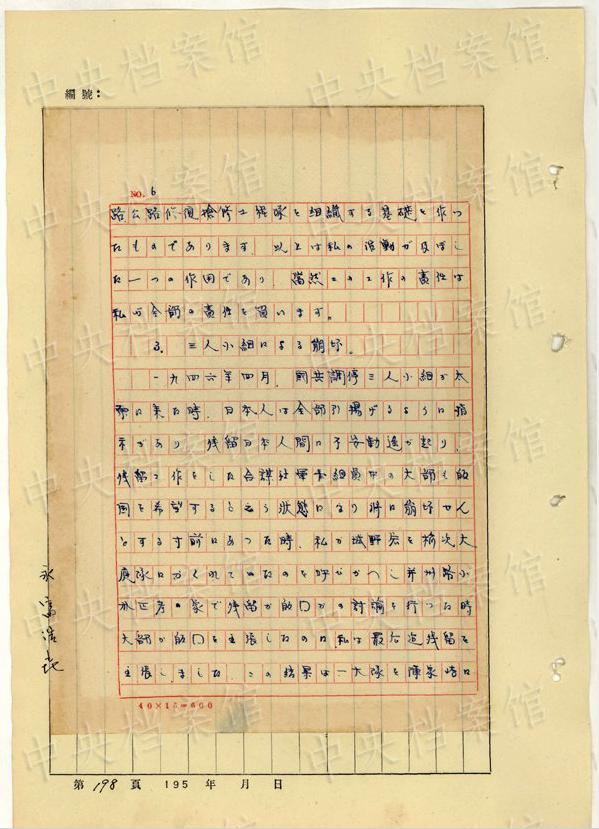 編號：
NO. 6
路公路修復檢修工程隊を組織する基礎を作つ
たものであります。以上は私の活動が及ぼし
た一つの作用であり、当然この工作の責任は
私が全部の責任を負います。
3. 三人小組による崩坏。
一九四六年四月、国共調停三人小組が太
原に来た時、日本人は全部引揚げるように指
示があり、残留日本人間に不安動遙が起り、
残留工作をした合謀社軍事組員中の大部も帰
国を希望すると云う状態になり將に崩坏せん
とする寸前にあつた時、私が城野宏を楡次大
隊にかくれていたのを呼びかへし并州路小
の家で残留か帰国かの討論を行つた時
大部が帰国を主張したのに、私は最后迄残留を
主張しました。この結果は一大隊を陳家峙に
40×15=600
永富浩喜
第198頁 195 年 月 日
中央档案馆